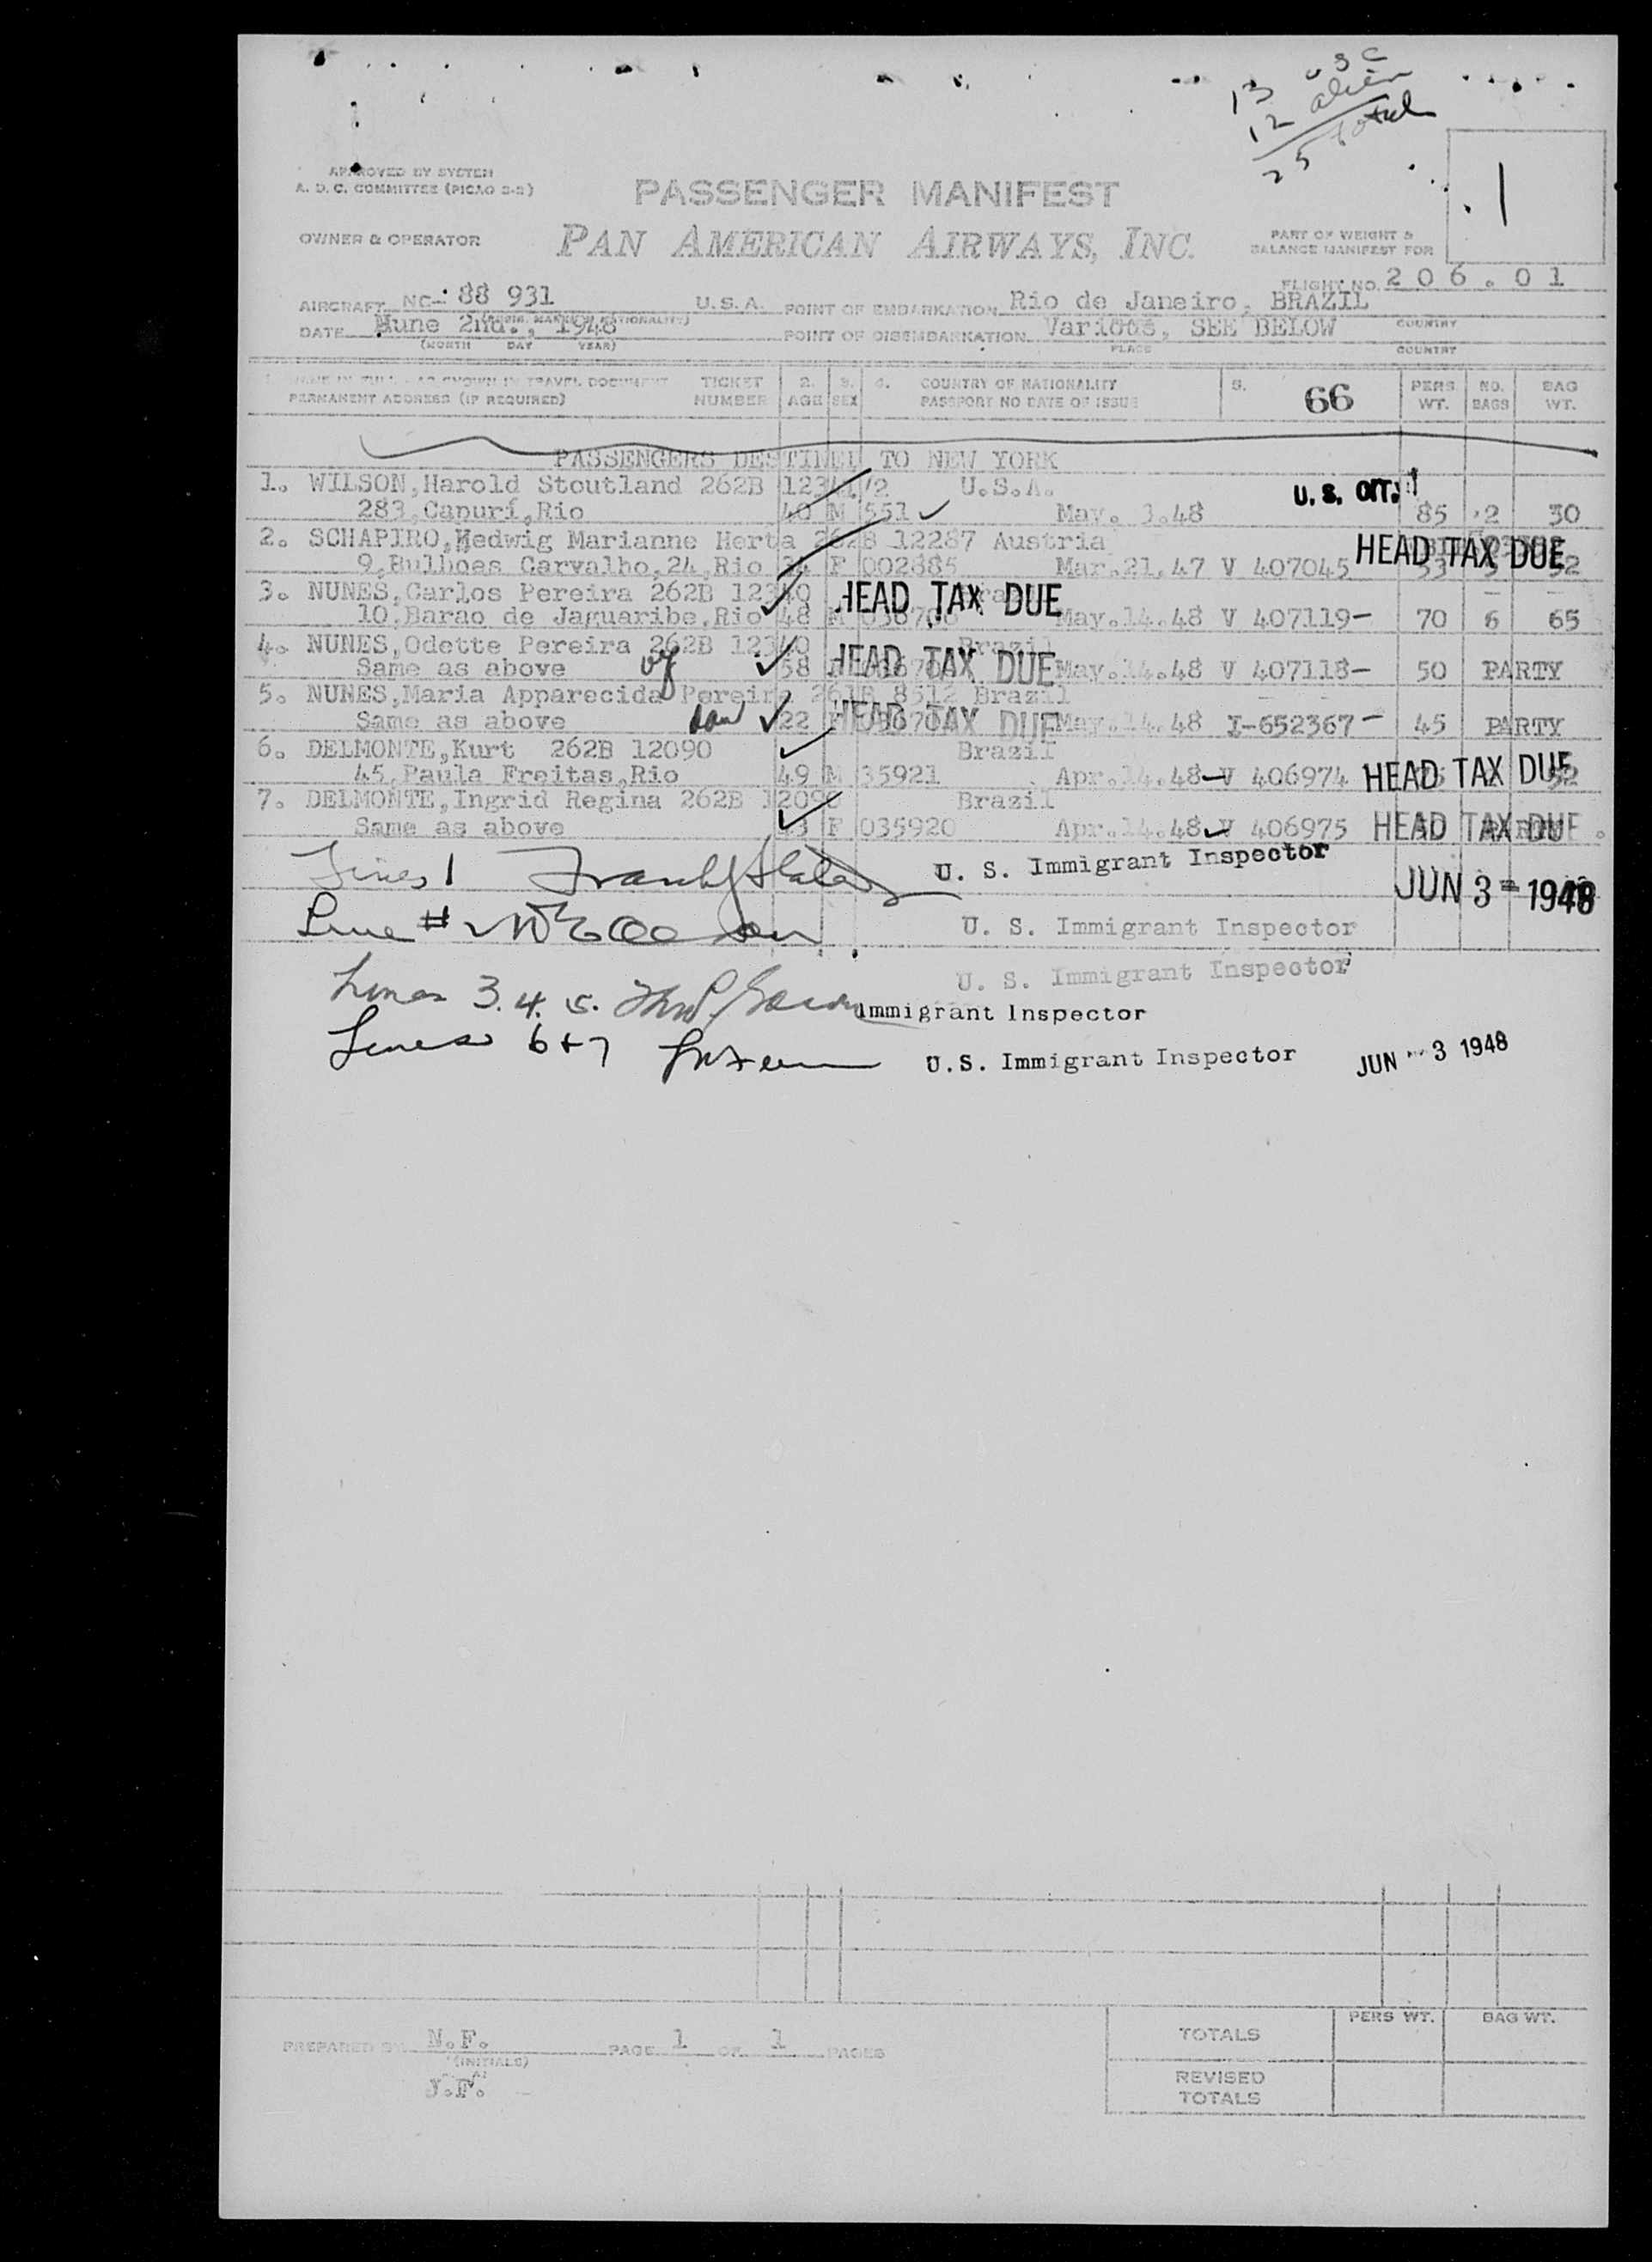 13 USC
12 alien
25 total
APPROVED BY SYSTEM
A. D. C. COMMITTEE (PICAO 2-2)
PASSENGER MANIFEST
1
OWNER & OPERATOR PAN AMERICAN AIRWAYS, INC. PART OF WEIGHT &
BALANCE MANIFEST FOR
FLIGHT NO. 206.01
AIRCRAFT NC-88 931 U.S.A. POINT OF EMBARKATION Rio de Janeiro, BRAZIL
DATE Mune 2nd., 1948 POINT OF DISEMBARKATION Various, SEE BELOW COUNTRY
(MONTH DAY YEAR) PLACE COUNTRY
NAME IN FULL - AS SHOWN IN TRAVEL DOCUMENT TICKET 2. 3. 4. COUNTRY OF NATIONALITY 5. 66 PERS NO. BAG
PERMANENT ADDRESS (IF REQUIRED) NUMBER AGE SEX PASSPORT NO DATE OF ISSUE WT. BAGS WT.
PASSENGERS DESTINED TO NEW YORK
1. WILSON,Harold Stoutland 262B U.S.A. U.S.
283,Capurí,Rio 40 M 551 May. 3.48 85 2 30
2. SCHAPIRO,Hedwig Marianne Herta 262B 12287 Austria HEAD TAX DUE
9,Bulhoas Carvalho,24,Rio F 002885 Mar.21.47 V 407045 53
3. NUNES,Carlos Pereira 262B 12340 HEAD TAX DUE
10,Barao de Jaguaribe,Rio 48 M May.14.48 V 407119- 70 6 65
4. NUNES,Odette Pereira 262B 12340 Brazil
Same as above 58 F HEAD TAX DUE May.14.48 V 407118- 50 PARTY
5. NUNES,Maria Apparecida Pereira 261B 8512 Brazil
Same as above 22 F HEAD TAX DUE May.14.48 I-652367- 45 PARTY
6. DELMONTE,Kurt 262B 12090 Brazil
45,Paula Freitas,Rio 49 M 35921 Apr.14.48-V 406974 HEAD TAX DUE
7. DELMONTE,Ingrid Regina 262B 12090 Brazil
Same as above F 035920 Apr.14.48 V 406975 HEAD TAX DUE
Lines 1 U. S. Immigrant Inspector JUN 3 - 1948
Line # 2 U. S. Immigrant Inspector
U. S. Immigrant Inspector
Lines 3. 4. 5. Immigrant Inspector
Lines 6+7 U.S. Immigrant Inspector JUN 3 1948
PERS WT. BAG WT.
PREPARED BY N.F. PAGE 1 OF 1 PAGES TOTALS
(INITIALS)
J.F. REVISED
TOTALS